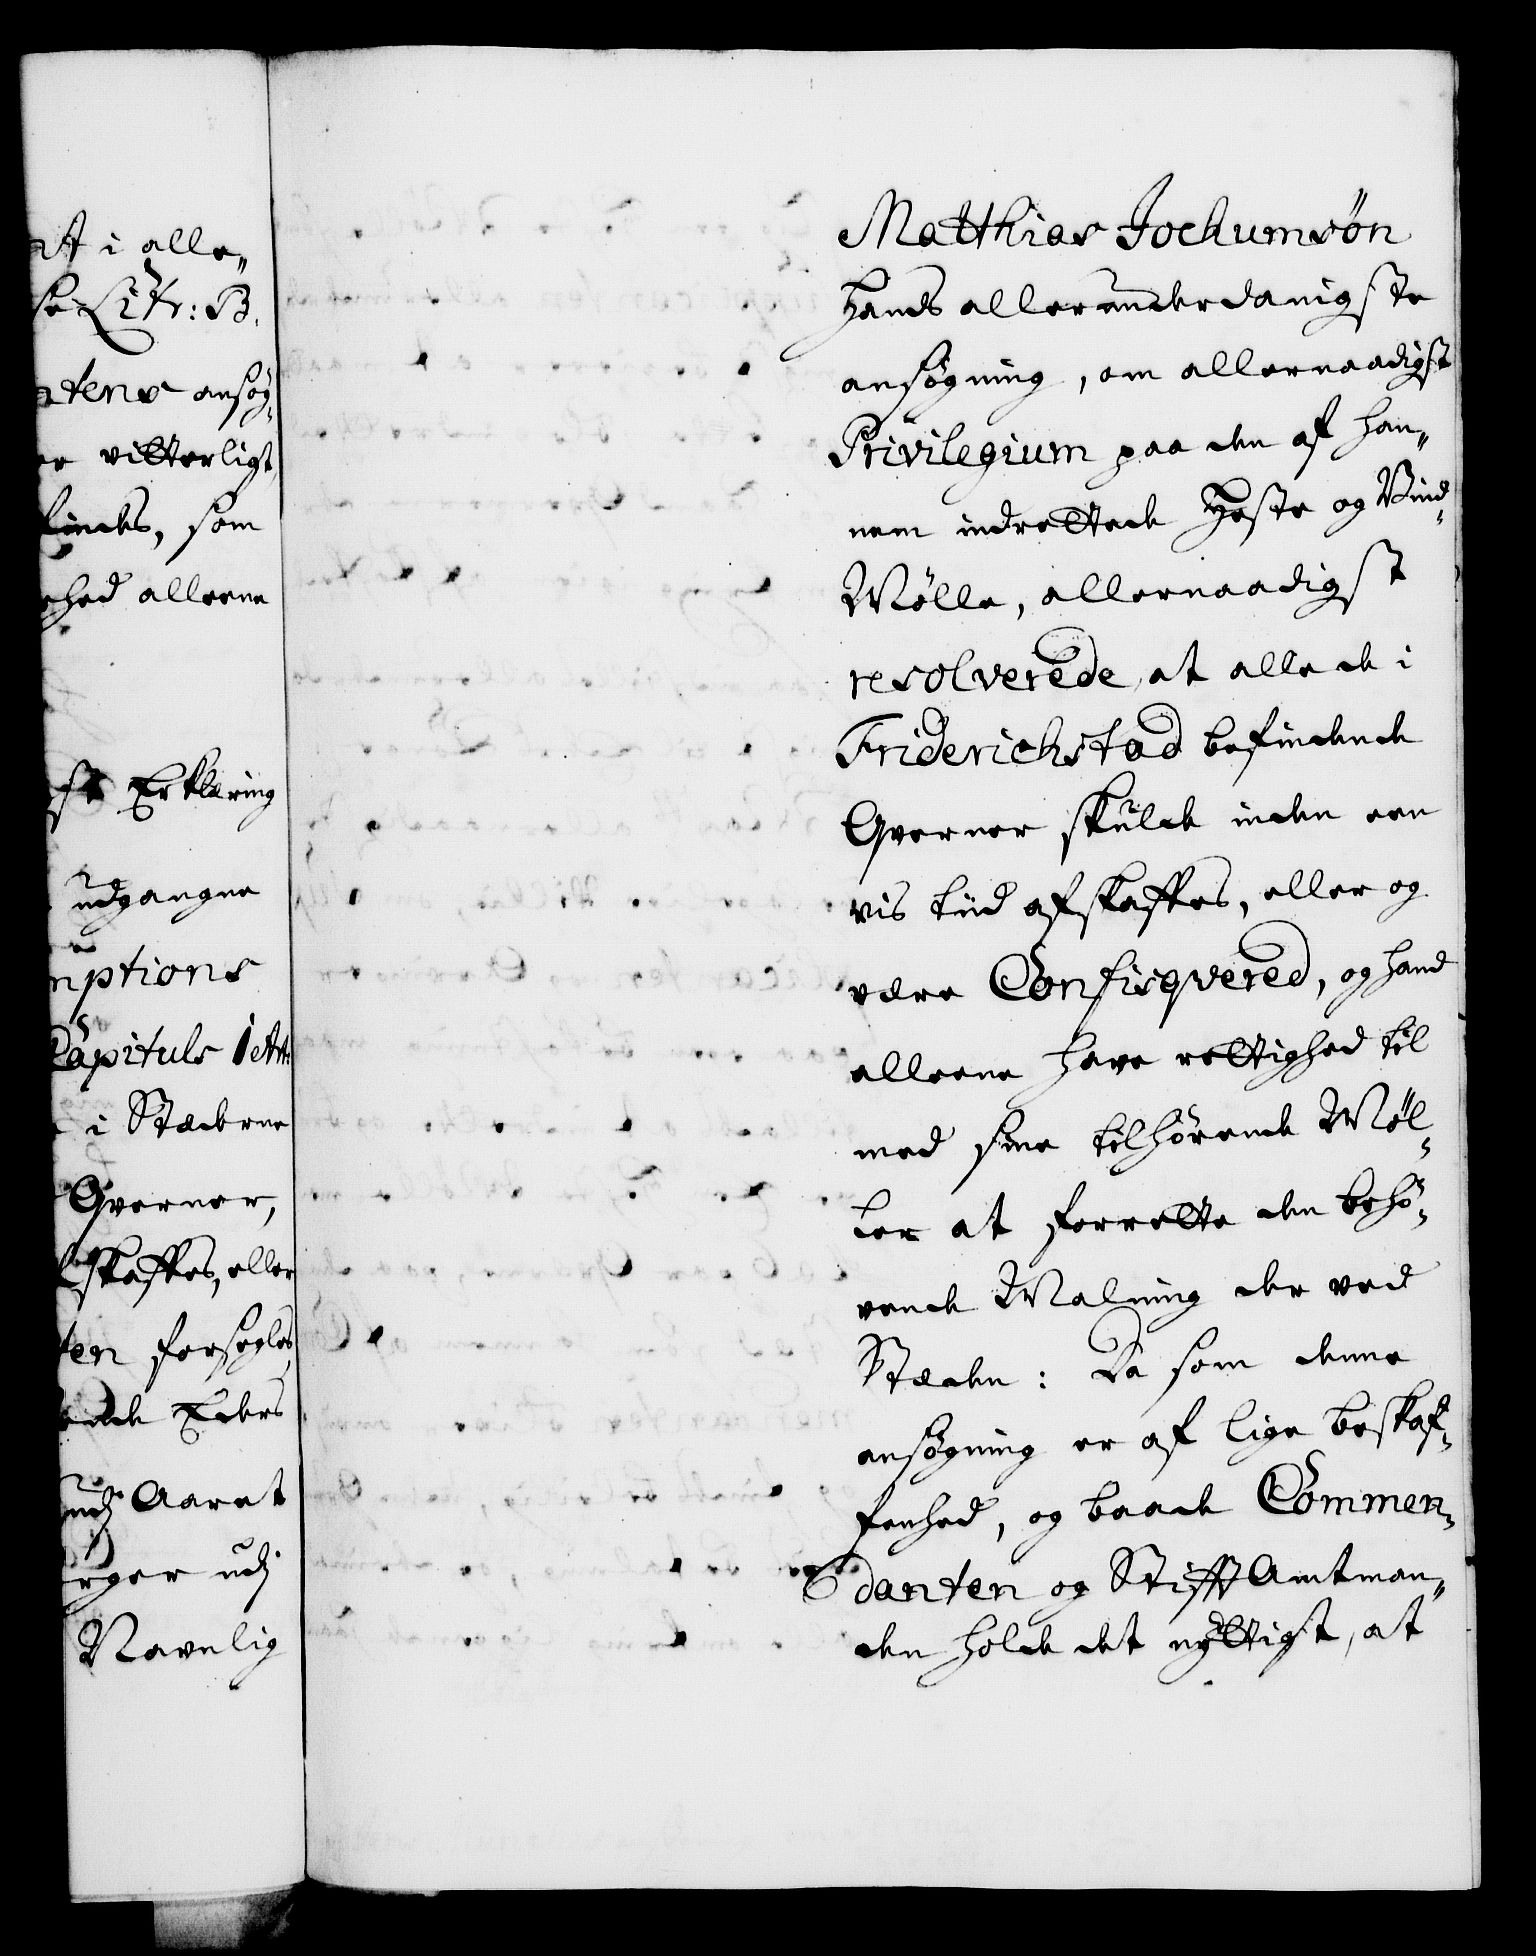 at i alle„
se Litr: B.
ntens ansøg„
er vitterligt,
findes, som
ghed alleene
st Erklæring
udgangne
mptions
Capituls 1 Art:
i Stæderne
Qverner,
skaffes, eller
ten forsegles,
ende Eders
udj Aaret
rger udj
Navnlig
Matthias Jochumsön
Hands allerunderdanigste
ansøgning, om allernaadigst
Privilegium paa den af han„
nem indrettede Heste og Vind„
Mølle, allernaadigst
resolverede, at alle de i
Friderichstad befindende
Qverner skulde inden een
vis tiid afskaffes, eller og
være Confisqvered, og hand
alleene have rettighed til
med sine tilhørende Møl„
ler at forrette den behø„
vende Malning der ved
Stæden: Da som denne
ansøgning er af lige beskaf„
fenhed, og baade Commen„
danten og Stifft Amtman„
den holde det nyttigt, at